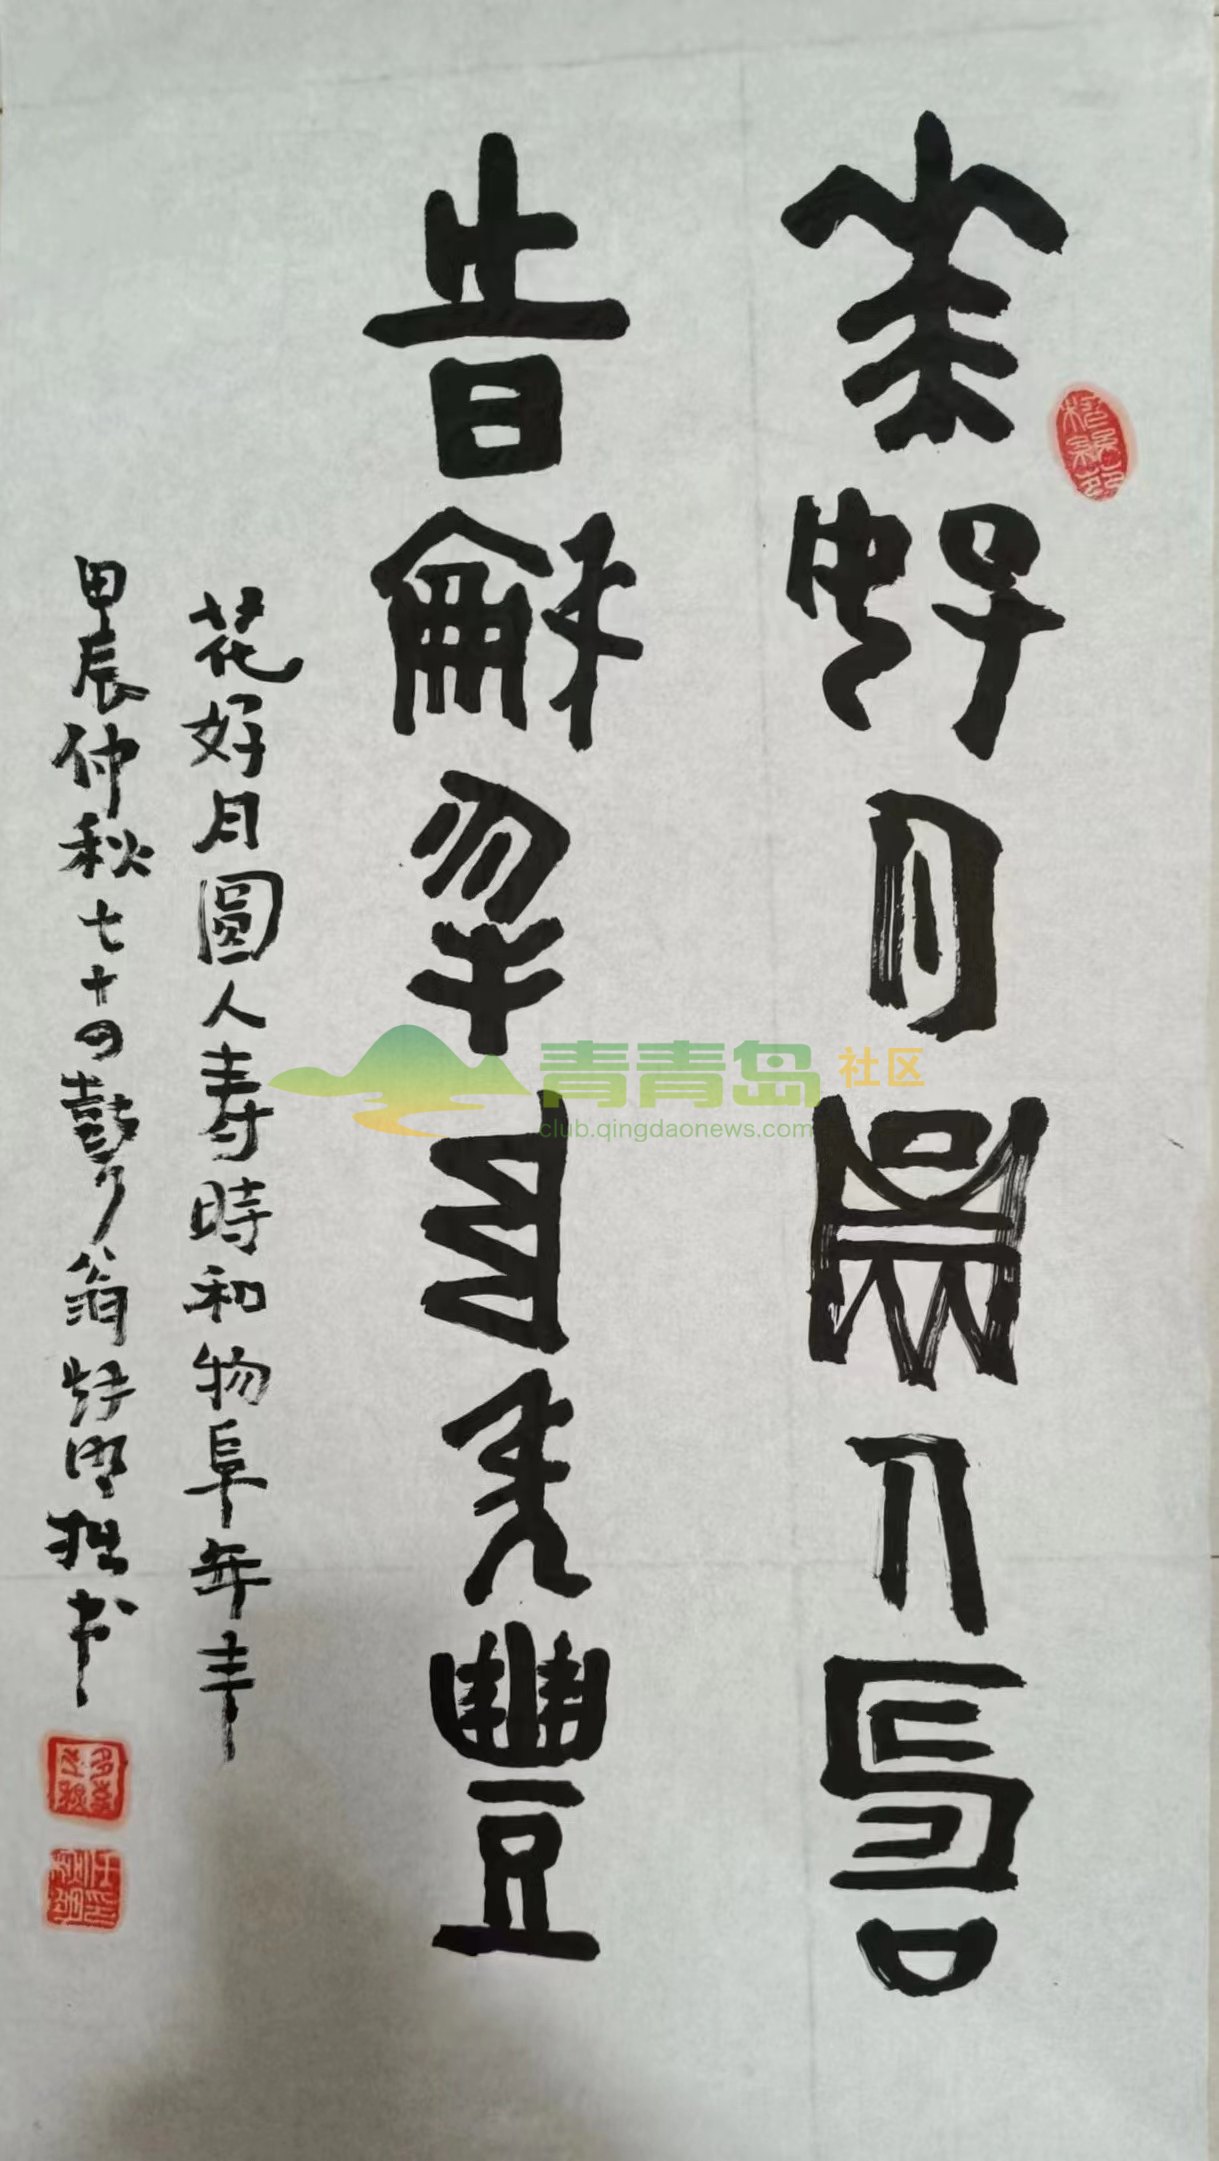 花好月圓人壽
時和物阜年豐
花好月圓人寿時和物阜年丰
甲辰仲秋七十四 翁 拙书
青青岛社区
club.qingdaonews.com